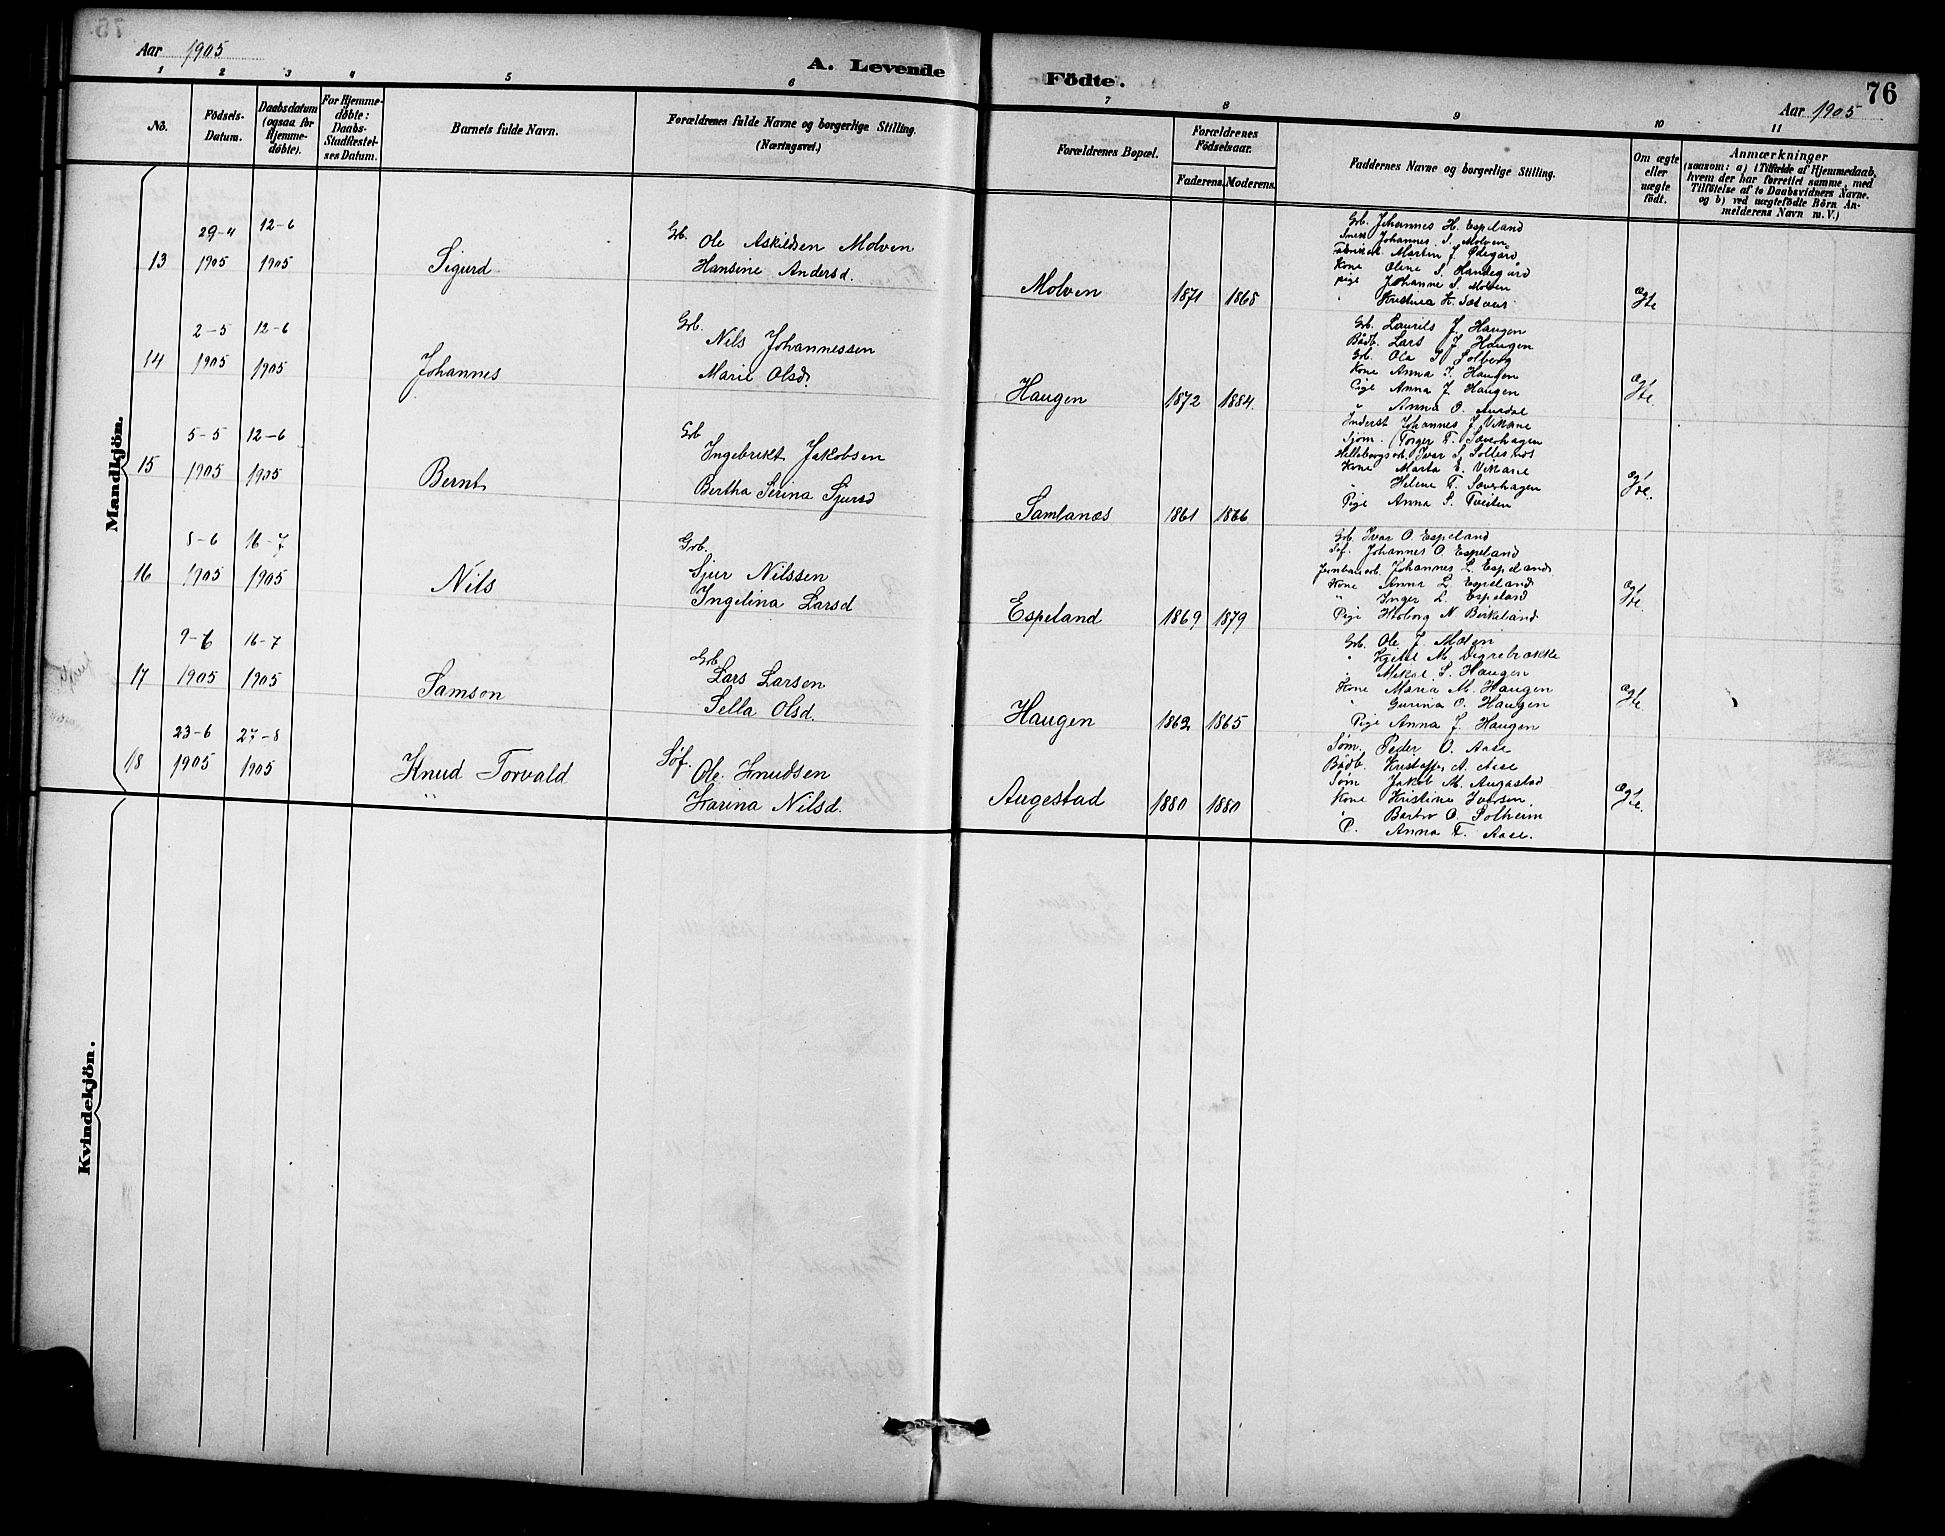 Aar 1905
A. Levende
Födte.
76
Aar 1905
1 2 3 4 5 6 7 8 9 10 11
No.
Födsels-
Datum.
Daabsdatum
(ogsaa for
Hjemme-
döbte).
For Hjemme-
döbte:
Daabs-
Stadfæstel-
ses Datum.
Barnets fulde Navn.
Forældrenes fulde Navne og borgerlige Stilling.
(Næringsvei.)
Forældrenes Bopæl.
Forældrenes
Födselsaar.
Faderens. Moderens.
Faddernes Navne og borgerlige Stilling.
Om ægte
eller
uægte
født.
Anmærkninger
(saasom: a) i Tilfælde af Hjemmedaab,
hvem der har forrettet samme, med
Tilføielse af to Daabsvidners Navne.
og b) ved uægtefödte Börn An-
melderens Navn m. V.)
Mandkjön.
13
29-4
1905
12-6
1905
Sigurd
Grb. Ole Askildsen Molven
Hansine Andersd.
Molven
1871 1865
Grb. Johannes H. Espeland
Johannes. S. Molven
Fabrikarb. Martin J. Ødegård
Kone Oline S. Handegård
pige Johanne S. Molven
" Kristina H.
Ægte
14
2-5
1905
12-6
1905
Johannes
Grb.
Nils Johannessen
Marie Olsd.
Haugen
1872 1884.
Grb. Laurits J. Haugen
Bådb. Lars J. Haugen
Grb. Ola S. Solberg
Kone Anna I. Haugen
Pige Anna J. Haugen
" Anna O. Aurdal
Ægte.
15
5-5
1905
12-6
1905
Bernt
Grb
Ingebrikt Jakobsen
Bertha Serina Sjursd
Samlanæs
1861 1866
Inderst Johannes J. Vikane
Sjøm. Torger T. Sæverhagen
Ivar S.
Kone Marta E. Vikane
" Helene T. Sæverhagen
Pige Anna S. Tveiten
Ægte.
16
8-6
1905
16-7
1905
Nils
Grb.
Sjur Nilssen
Ingelina Larsd
Espeland
1869 1879
Grb. Ivar O. Espeland
Søf. Johannes O. Espeland
Johannes L. Espeland
Kone Anna L. Espeland
" Inger L. Espeland
Pige N. Birkeland
Ægte.
17
9-6
1905
16-7
1905
Samson
Grb.
Lars Larsen
Sella Olsd.
Haugen
1862 1865
Grb. Ole J. Molven
" Kjetil M. Digrebrække
" Mikal S. Haugen
Kone Maria M. Haugen
" Gurina O. Haugen
Pige Anna J. Haugen
Ægte
18
23-6
1905
27-8
1905
Knud Torvald
"
Søf. Ole Knudsen
Karina Nilsd.
Augestad
1880 1880
Søm. Peder O. Aase
Bådb Kristoffer A. Aase
Søm Jakob M. Augastad
Kone Kristine Iversen.
" Barbro O. Solheim
P. Anna T. Aase.
Ægte.
Kvindekjön.